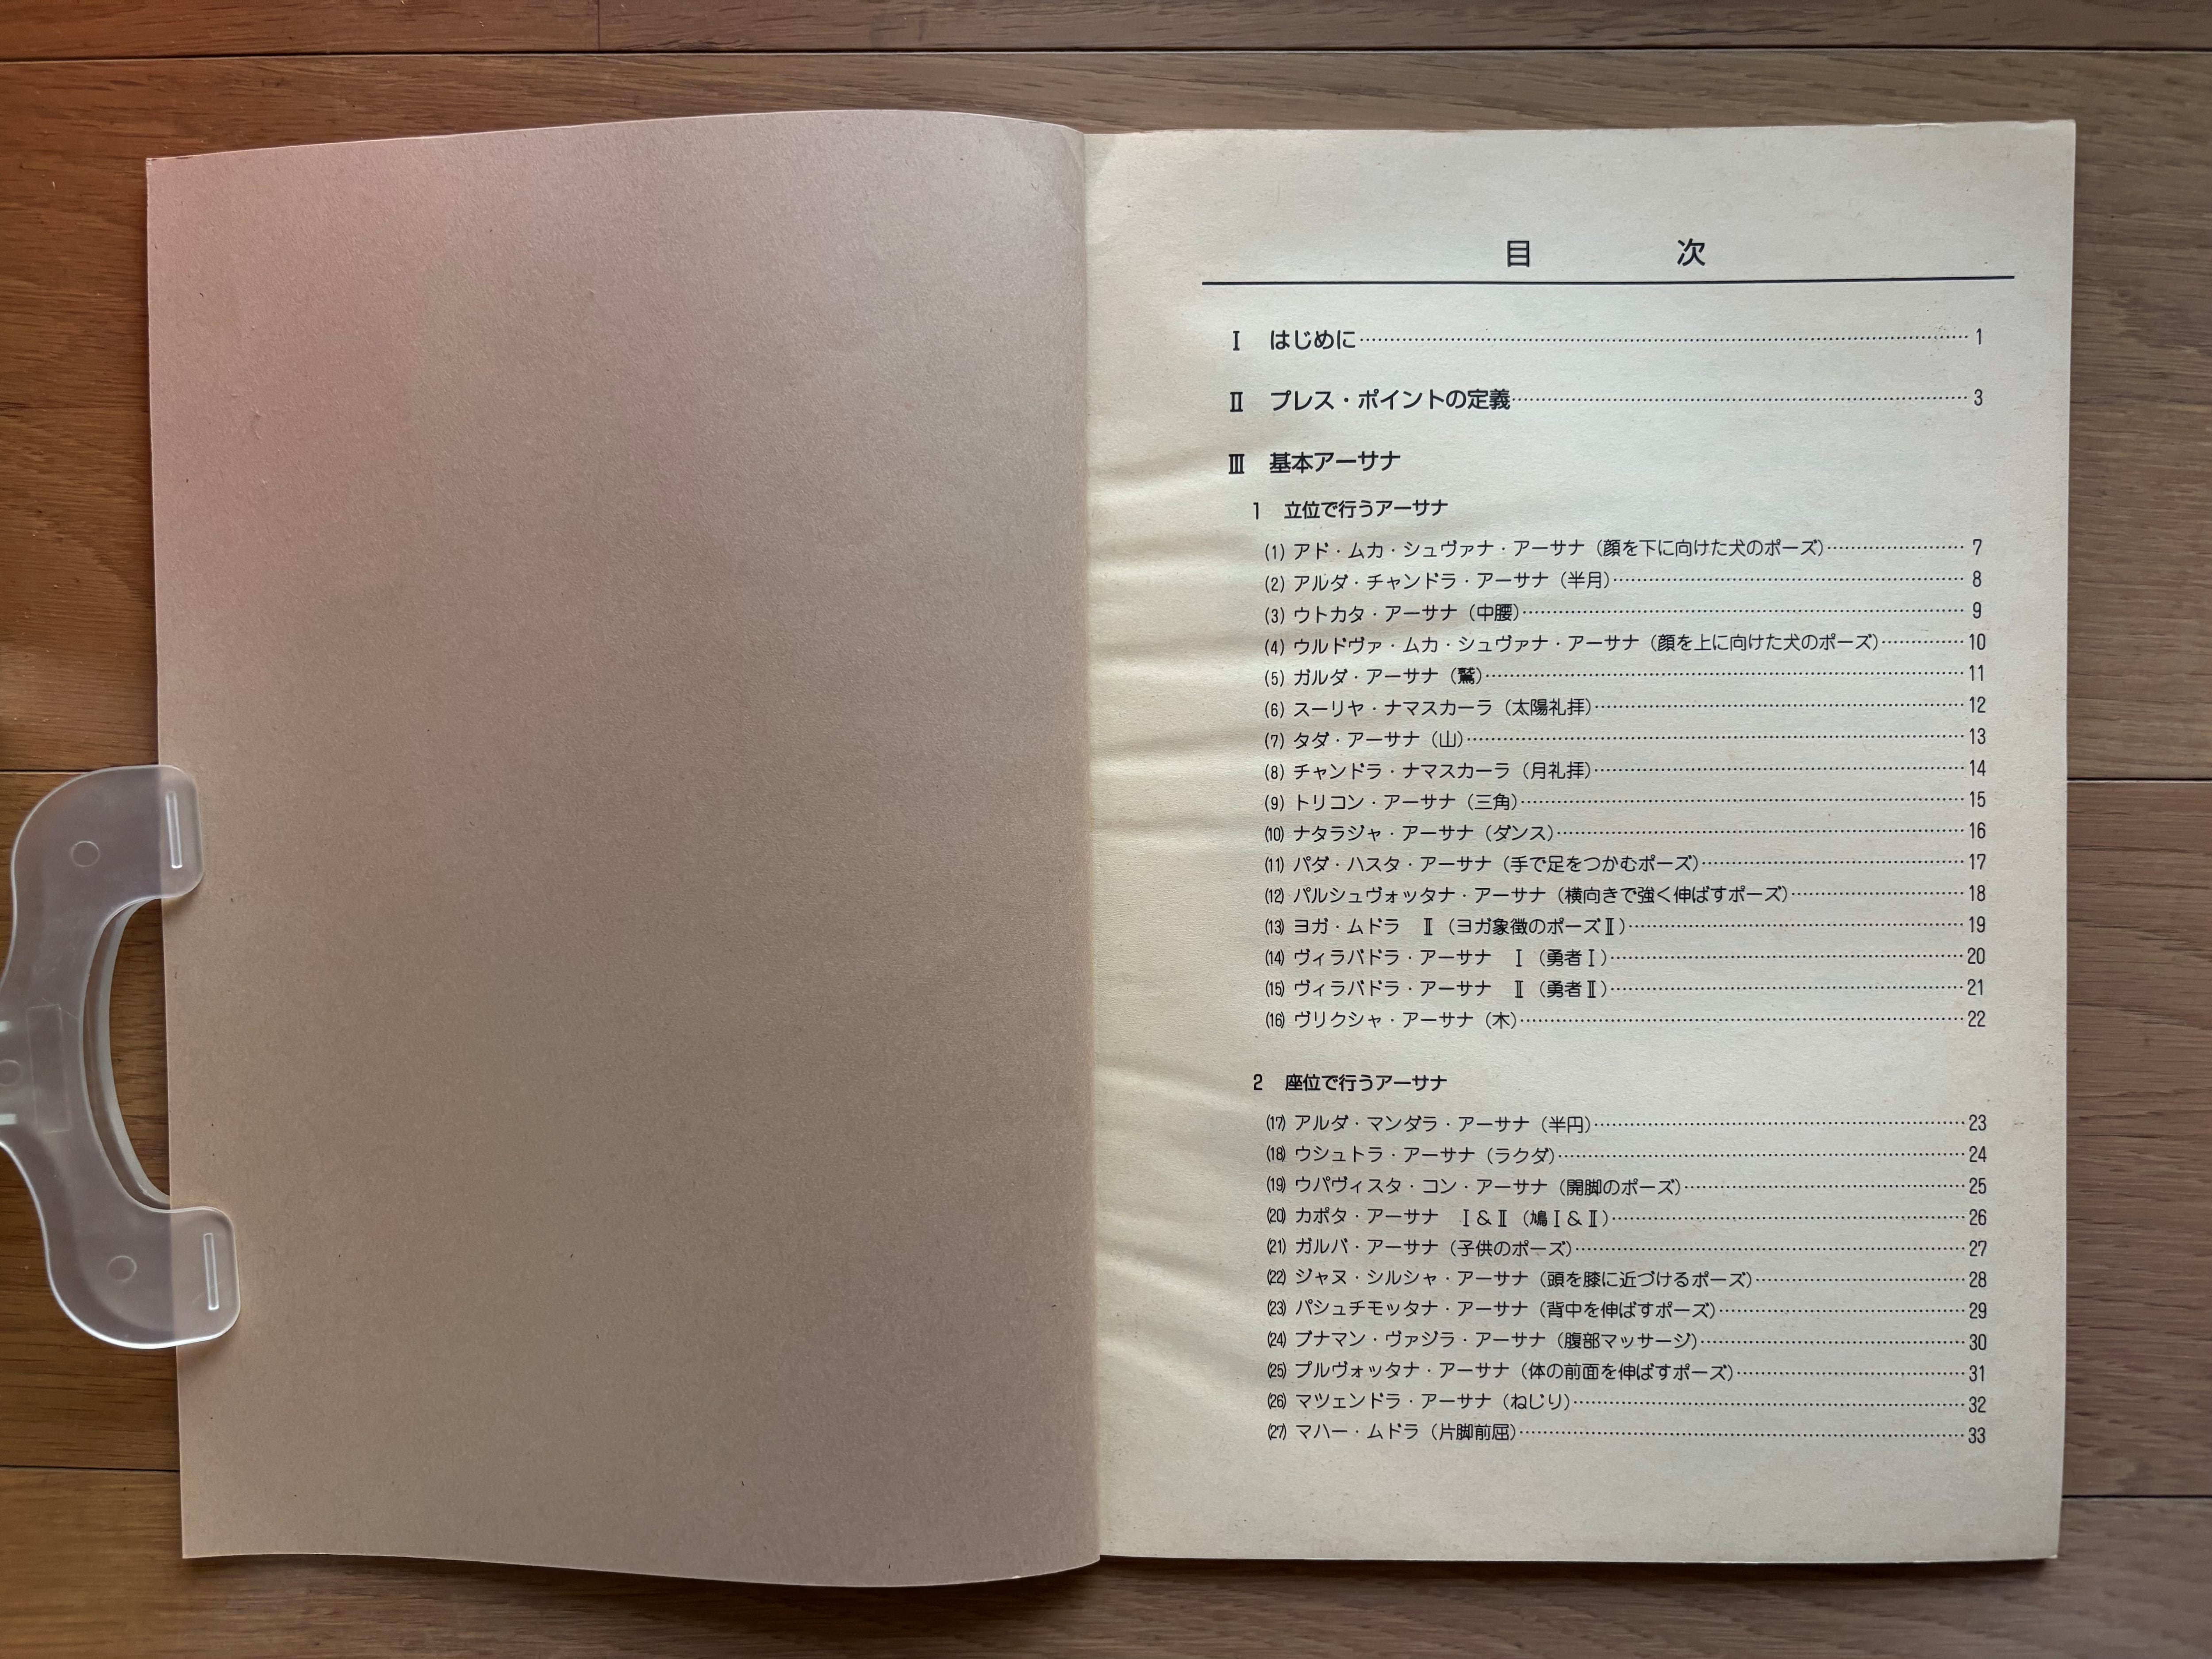 目 次
Ⅰ はじめに…………1
Ⅱ プレス・ポイントの定義…………3
Ⅲ 基本アーサナ
1 立位で行うアーサナ
(1) アド・ムカ・シュヴァナ・アーサナ（顔を下に向けた犬のポーズ）…………7
(2) アルダ・チャンドラ・アーサナ（半月）…………8
(3) ウトカタ・アーサナ（中腰）…………9
(4) ウルドヴァ・ムカ・シュヴァナ・アーサナ（顔を上に向けた犬のポーズ）…………10
(5) ガルダ・アーサナ（鷲）…………11
(6) スーリヤ・ナマスカーラ（太陽礼拝）…………12
(7) タダ・アーサナ（山）…………13
(8) チャンドラ・ナマスカーラ（月礼拝）…………14
(9) トリコン・アーサナ（三角）…………15
(10) ナタラジャ・アーサナ（ダンス）…………16
(11) パダ・ハスタ・アーサナ（手で足をつかむポーズ）…………17
(12) パルシュヴォッタナ・アーサナ（横向きで強く伸ばすポーズ）…………18
(13) ヨガ・ムドラ Ⅱ（ヨガ象徴のポーズⅡ）…………19
(14) ヴィラバドラ・アーサナ Ⅰ（勇者Ⅰ）…………20
(15) ヴィラバドラ・アーサナ Ⅱ（勇者Ⅱ）…………21
(16) ヴリクシャ・アーサナ（木）…………22
2 座位で行うアーサナ
(17) アルダ・マンダラ・アーサナ（半円）…………23
(18) ウシュトラ・アーサナ（ラクダ）…………24
(19) ウパヴィスタ・コン・アーサナ（開脚のポーズ）…………25
(20) カポタ・アーサナ Ⅰ＆Ⅱ（鳩Ⅰ＆Ⅱ）…………26
(21) ガルバ・アーサナ（子供のポーズ）…………27
(22) ジャヌ・シルシャ・アーサナ（頭を膝に近づけるポーズ）…………28
(23) パシュチモッタナ・アーサナ（背中を伸ばすポーズ）…………29
(24) プナマン・ヴァジラ・アーサナ（腹部マッサージ）…………30
(25) プルヴォッタナ・アーサナ（体の前面を伸ばすポーズ）…………31
(26) マツェンドラ・アーサナ（ねじり）…………32
(27) マハー・ムドラ（片脚前屈）…………33